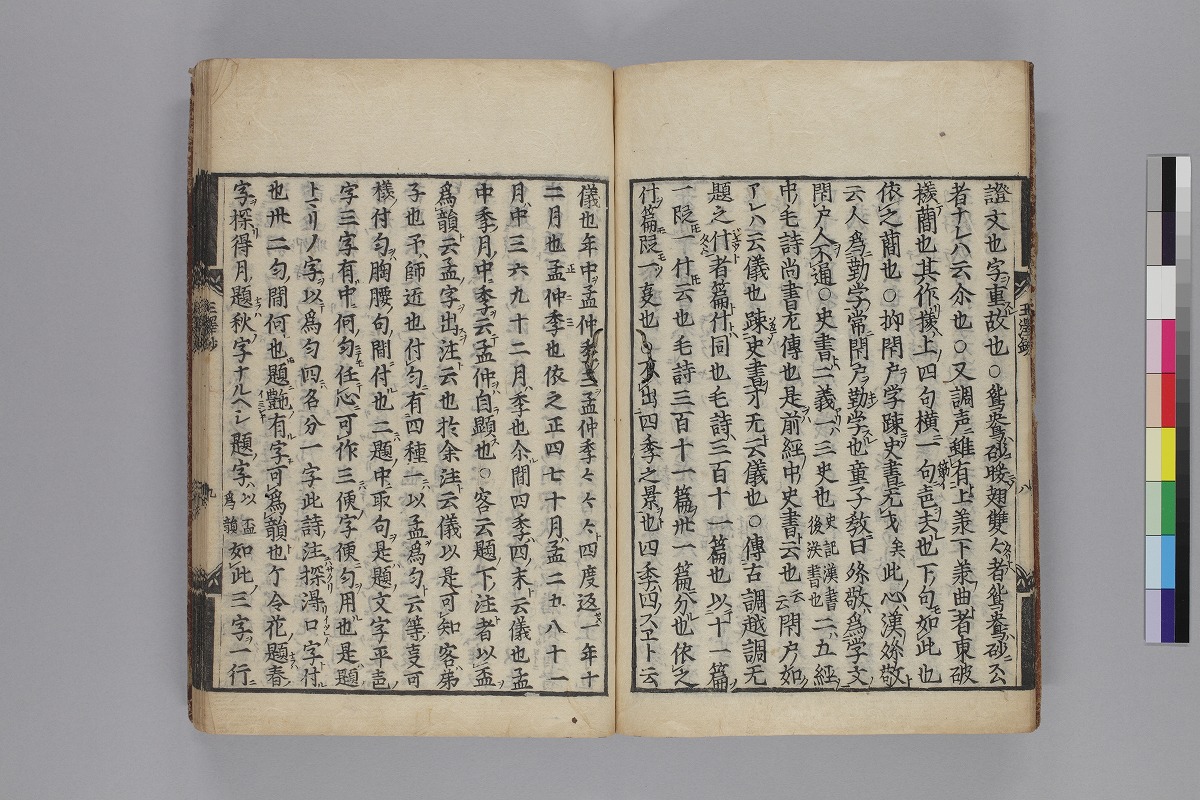 證文也字重故也○鴛鴦砂暖翅雙々者鴛鴦砂云
者ナレハ云尒也○又調声雖有上兼下兼曲者東破
様藺也其作様上四句横一句声去也下句如此也
依之藺也○抑閇戸学踈史書无才矣此心漢孫敬
云人為勤学常閇戸勤学也童子教曰孫敬為学文
閇戸人不通○史書二義一三史也史記漢書後漢書也二五経
中毛詩尚書左傳也是前経中史書云也云閇戸如
アレハ云儀也踈史書才无云儀也○傳古調越調无
題之什者篇什同也毛詩三百十一篇也以十一篇
一段一什云也毛詩三百十一篇卅一篇分也依之
付篇段一叓也○出四季之景也四季四スヱト云
儀也年中孟仲季三孟仲季々々々四度返一年十
二月也孟仲季也依之正四七十月孟二五八十一
月中三六九十二月季也尒間四季四末云儀也孟
中季月中季云孟仲自顕也○客云題下注者以孟
為韻云孟字出注云也於余注云儀以是可知客弟
子也予師近也付勻有四種一以孟為勻云等叓可
様付勻胸腰句間付也二題中取句是題文字平声
字三字有中何勻任心可作三便字便勻用也是題
ト下リノ字以為勻四各分一字此詩注探得口字付
也卅二勻間何也題艶有字可為韻也今令花題春
字探得月題秋字ナルヘシ題字以孟為韻如此三字一行
玉澤鈔
八
玉澤鈔
九